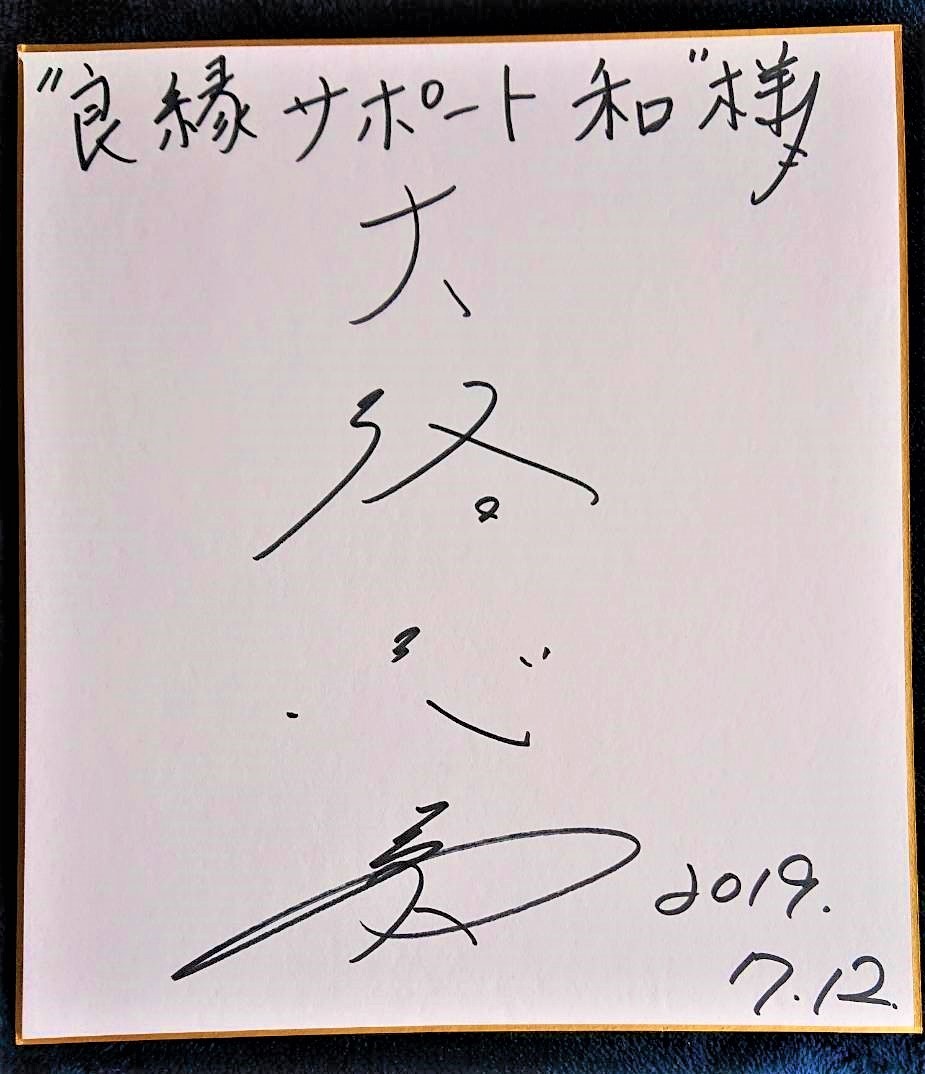 "良縁サポート和"様
大路恵美
2019.
7.12.